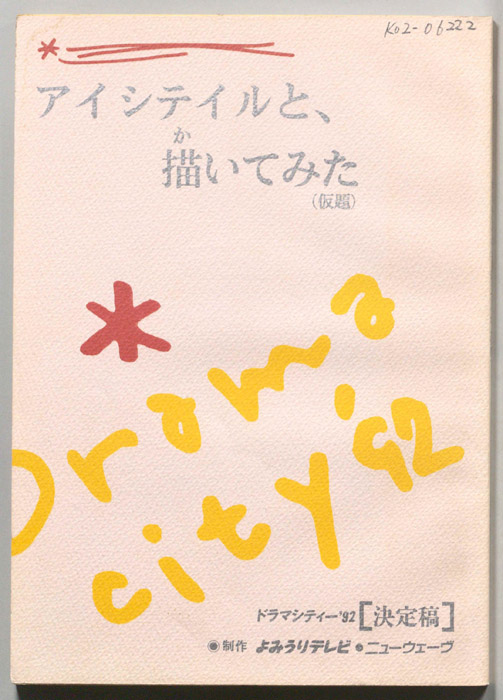 K02-06222
アイシテイルと、
か
描いてみた
(仮題)
Drama
city '92
ドラマシティー'92［決定稿］
◉制作 よみうりテレビ●ニューウェーヴ